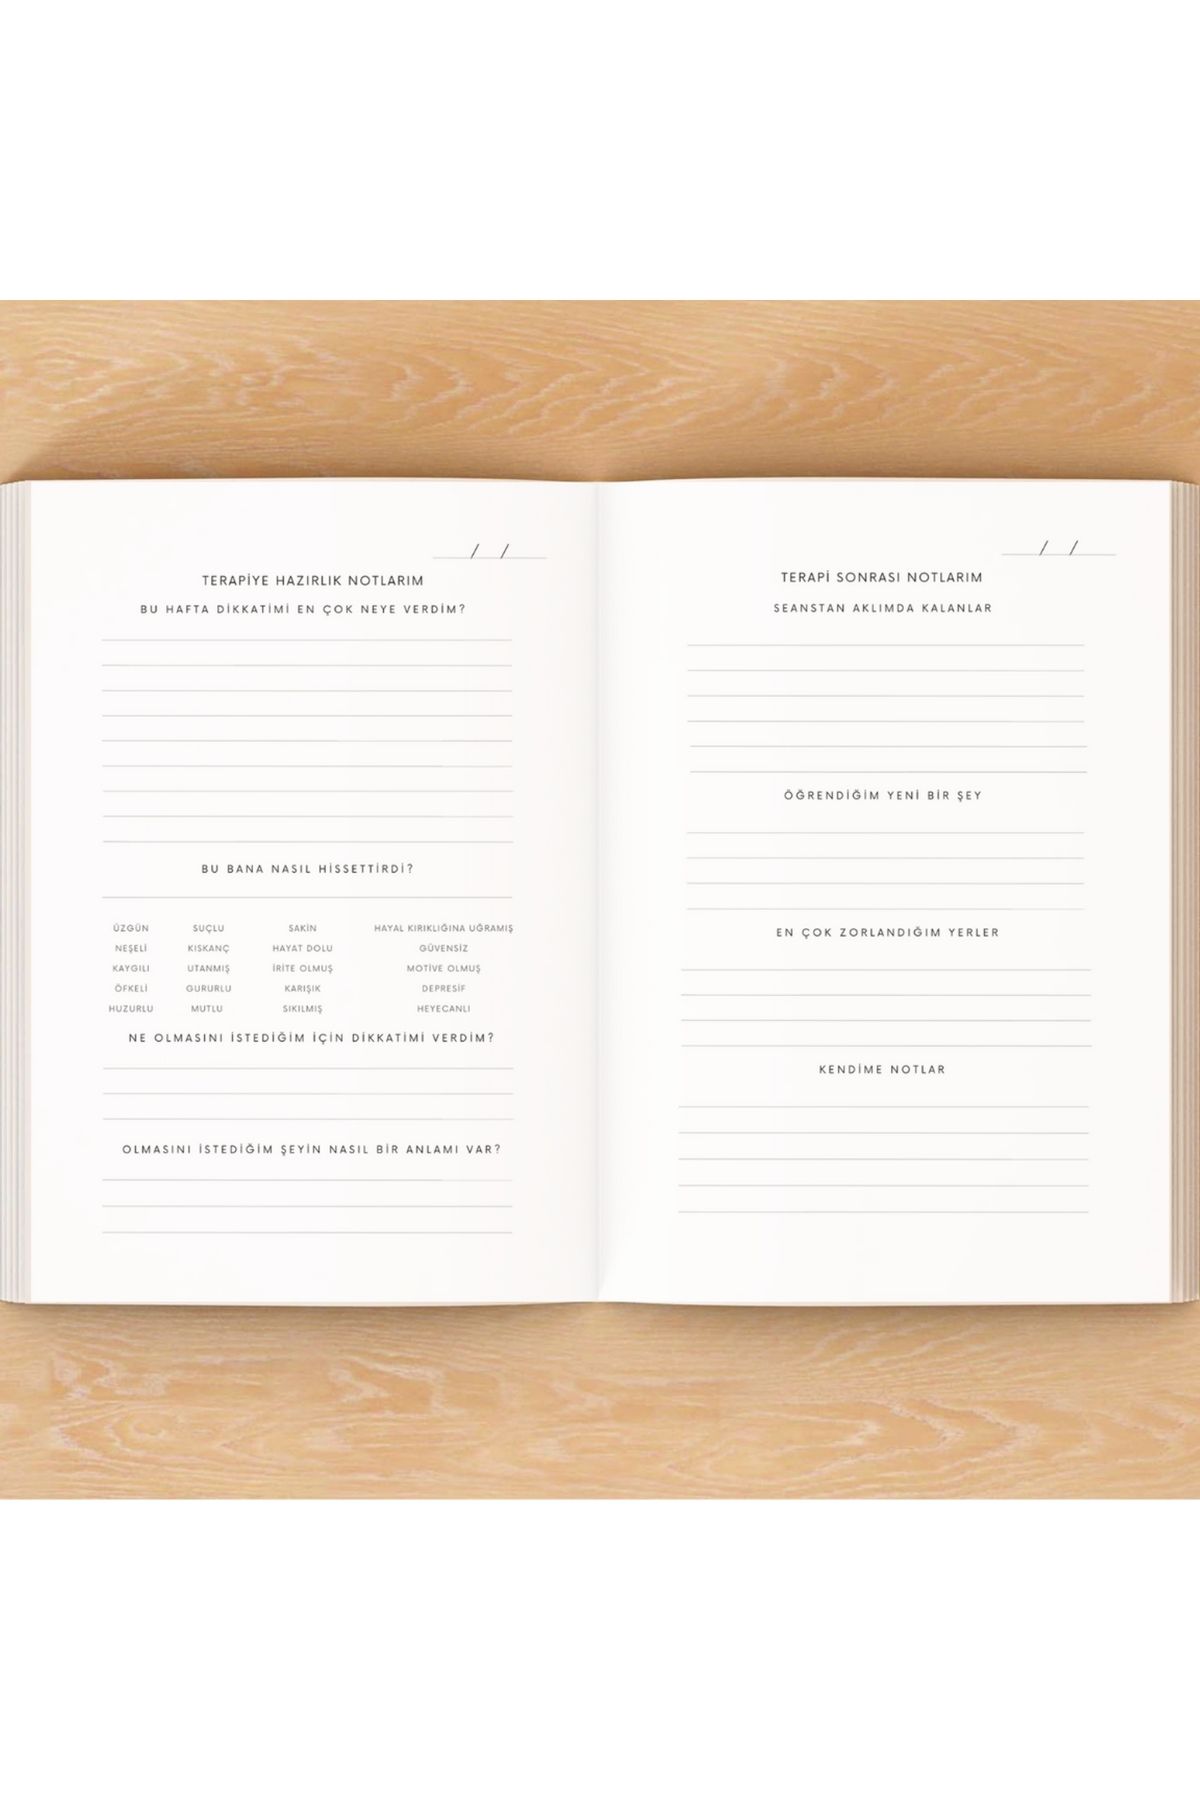 / /
TERAPİYE HAZIRLIK NOTLARIM
BU HAFTA DİKKATİMİ EN ÇOK NEYE VERDİM?
BU BANA NASIL HİSSETTİRDİ?
ÜZGÜN SUÇLU SAKİN HAYAL KIRIKLIĞINA UĞRAMIŞ
NEŞELİ KISKANÇ HAYAT DOLU GÜVENSİZ
KAYGILI UTANMIŞ İRİTE OLMUŞ MOTİVE OLMUŞ
ÖFKELİ GURURLU KARIŞIK DEPRESİF
HUZURLU MUTLU SIKILMIŞ HEYECANLI
NE OLMASINI İSTEDİĞİM İÇİN DİKKATİMİ VERDİM?
OLMASINI İSTEDİĞİM ŞEYİN NASIL BİR ANLAMI VAR?
/ /
TERAPİ SONRASI NOTLARIM
SEANSTAN AKLIMDA KALANLAR
ÖĞRENDİĞİM YENİ BİR ŞEY
EN ÇOK ZORLANDIĞIM YERLER
KENDİME NOTLAR